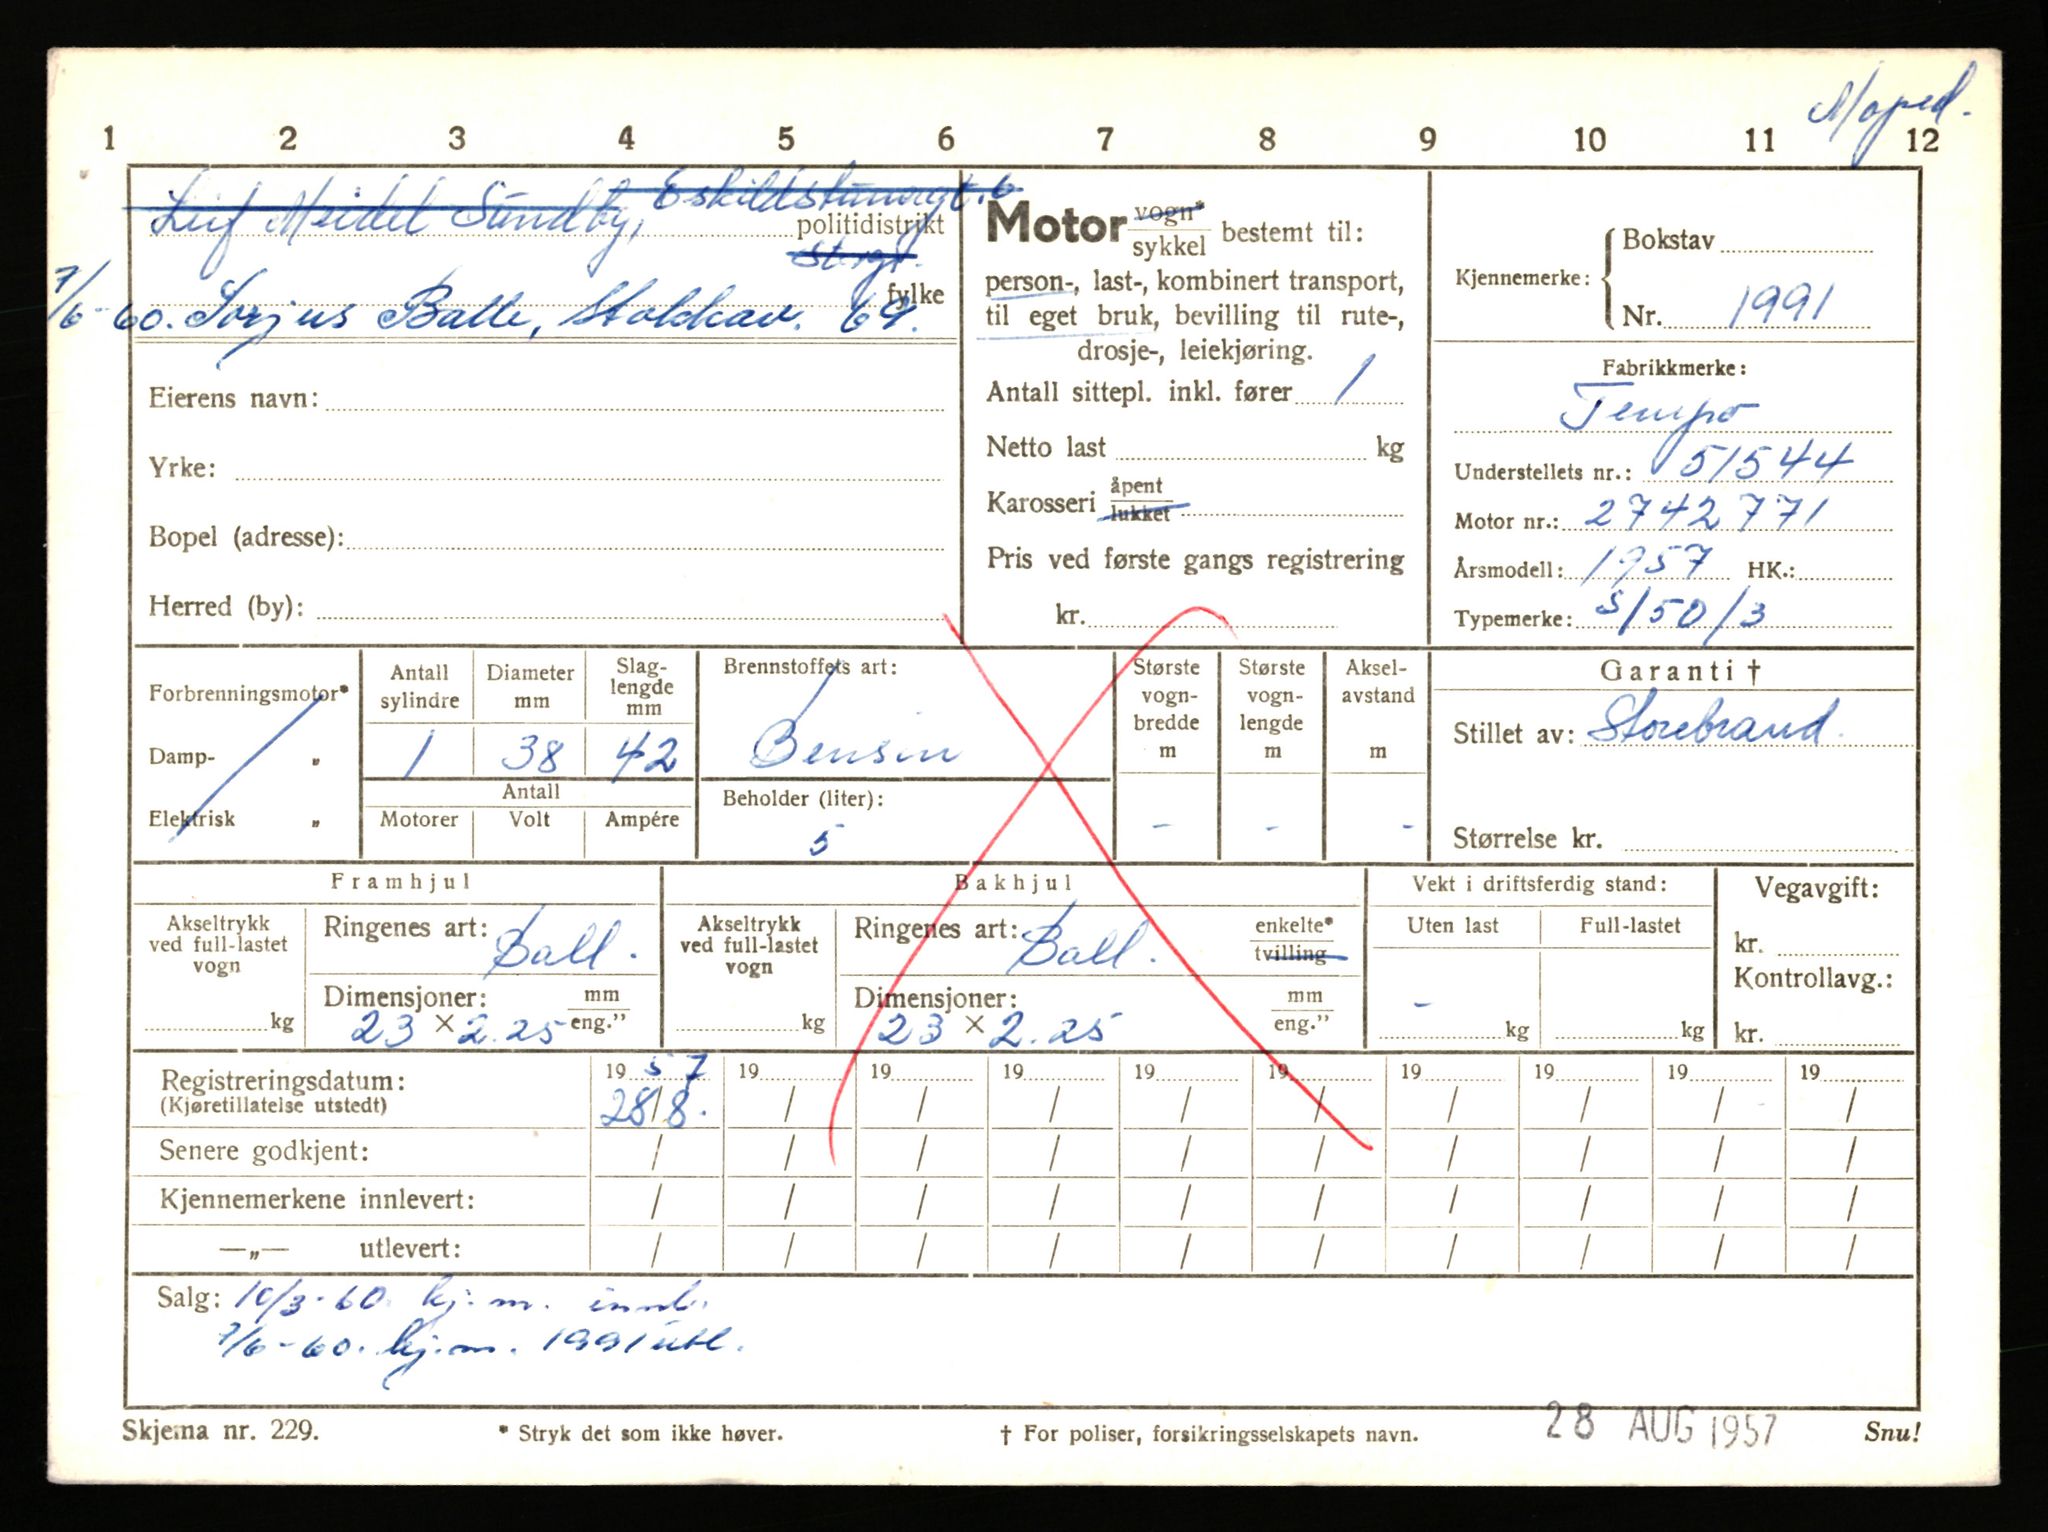 Moped.
1 2 3 4 5 6 7 8 9 10 11 12
Leif Meidel Sundby, Eskildstunergt. 6
politidistrikt
Storgt.
fylke
7/6-60. Sorjus Balle, Stokkav. 69.
Eierens navn:
Yrke:
Bopel (adresse):
Herred (by):
Motor vogn*
sykkel bestemt til:
person-, last-, kombinert transport,
til eget bruk, bevilling til rute-,
drosje-, leiekjøring.
Antall sittepl. inkl. fører 1
Netto last kg
Karosseri åpent
lukket
Pris ved første gangs registrering
kr.
Kjennemerke: Bokstav
Nr. 1991
Fabrikkmerke:
Tempo
Understellets nr.: 51544
Motor nr.: 2742771
Årsmodell: 1957 HK.:
Typemerke: S/50/3
Forbrenningsmotor*
Damp- „
Elektrisk „
Antall sylindre
Diameter mm
Slag-lengde mm
1 38 42
Antall
Motorer Volt Ampére
Brennstoffets art:
Bensin
Beholder (liter):
5
Største vogn-bredde m
Største vogn-lengde m
Aksel-avstand m
- - -
Garanti †
Stillet av: Storebrand.
Størrelse kr.
Framhjul
Akseltrykk ved full-lastet vogn
kg
Ringenes art: Ball.
Dimensjoner: mm
23 × 2.25 eng.”
Bakhjul
Akseltrykk ved full-lastet vogn
kg
Ringenes art: Ball. enkelte*
tvilling
Dimensjoner: mm
23 × 2.25 eng.”
Vekt i driftsferdig stand:
Uten last Full-lastet
-
kg kg
Vegavgift:
kr.
Kontrollavg.:
kr.
Registreringsdatum: 1957 19 19 19 19 19 19 19 19 19
(Kjøretillatelse utstedt) 28/8. / / / / / / / / /
Senere godkjent: / / / / / / / / / /
Kjennemerkene innlevert: / / / / / / / / / /
—„— utlevert: / / / / / / / / / /
Salg: 10/3-60. kj.m. innl.
7/6-60. kj.m. 1991 utl.
Skjema nr. 229.
* Stryk det som ikke høver.
† For poliser, forsikringsselskapets navn.
28 AUG 1957
Snu!